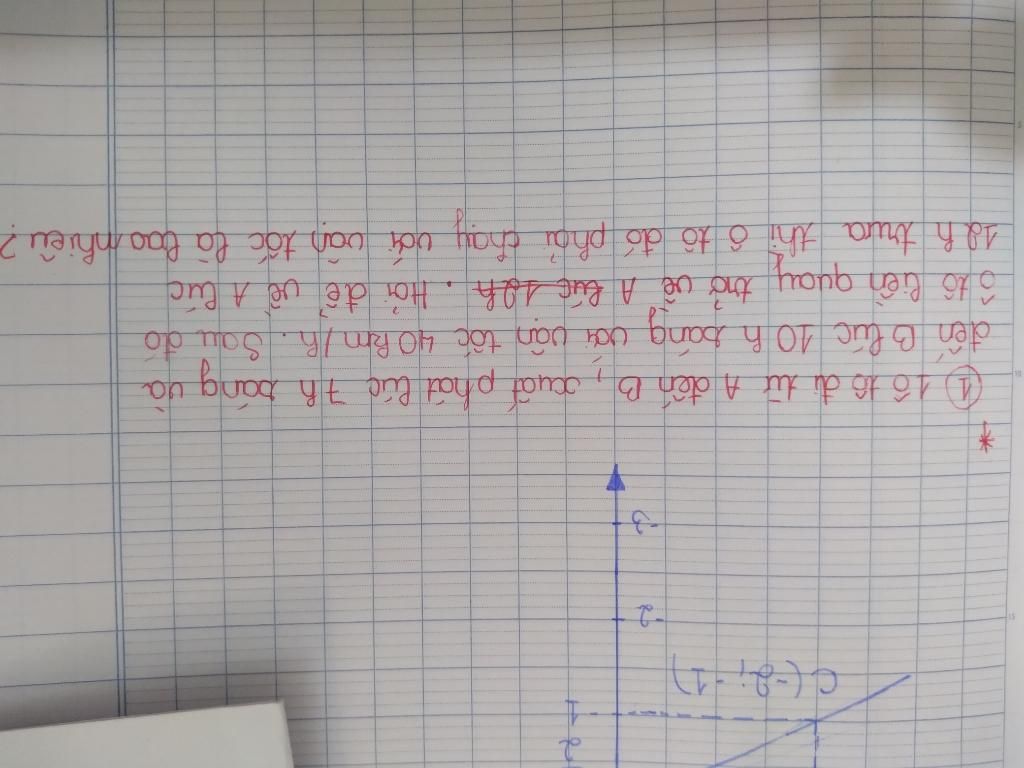 2
-1
C(-2; -1)
-2
-3
*
① 1 ô tô đi từ A đến B, xuất phát lúc 7h sáng và
đến B lúc 10h sáng với vận tốc 40km/h. Sau đó
ô tô liền quay trở về A lúc 12h. Hỏi để về A lúc
12h trưa thì ô tô đó phải chạy với vận tốc là bao nhiêu?